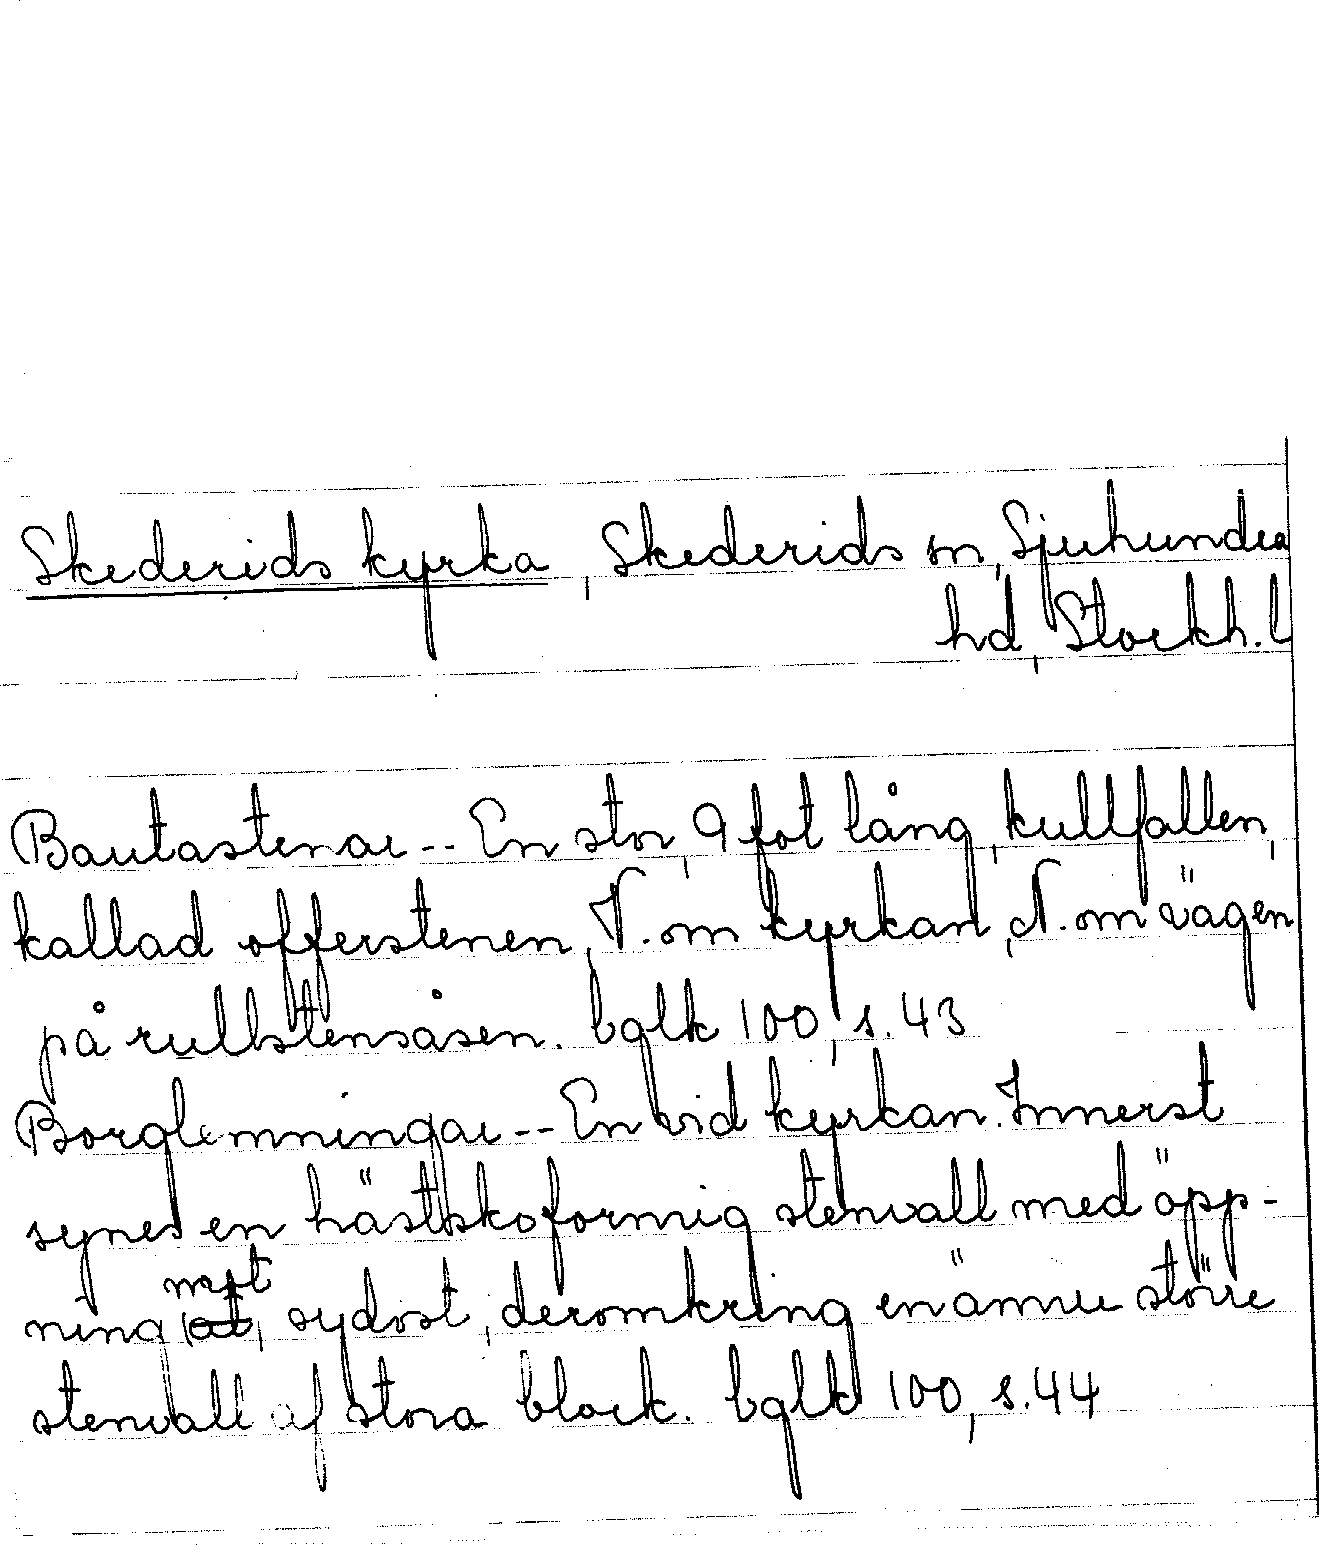 Skederids kyrka, Skederids sn, Sjuhundra
hd, Stockh. l
Bautastenar -- En stor, 9 fot lång, kullfallen,
kallad offerstenen, V. om kyrkan, N. om vägen
på rullstensåsen. bglk 100, s. 43
Borglemningar -- En vid kyrkan. Innerst
synes en hästskoformig stenvall med öpp-
ning mot sydost, deromkring en ännu större
stenvall af stora block. bglk 100, s. 44